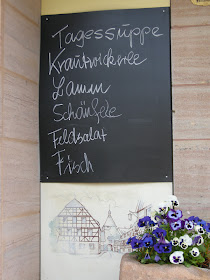 Tagessuppe
Krautwickerle
Lamm
Schäufele
Feldsalat
Fisch